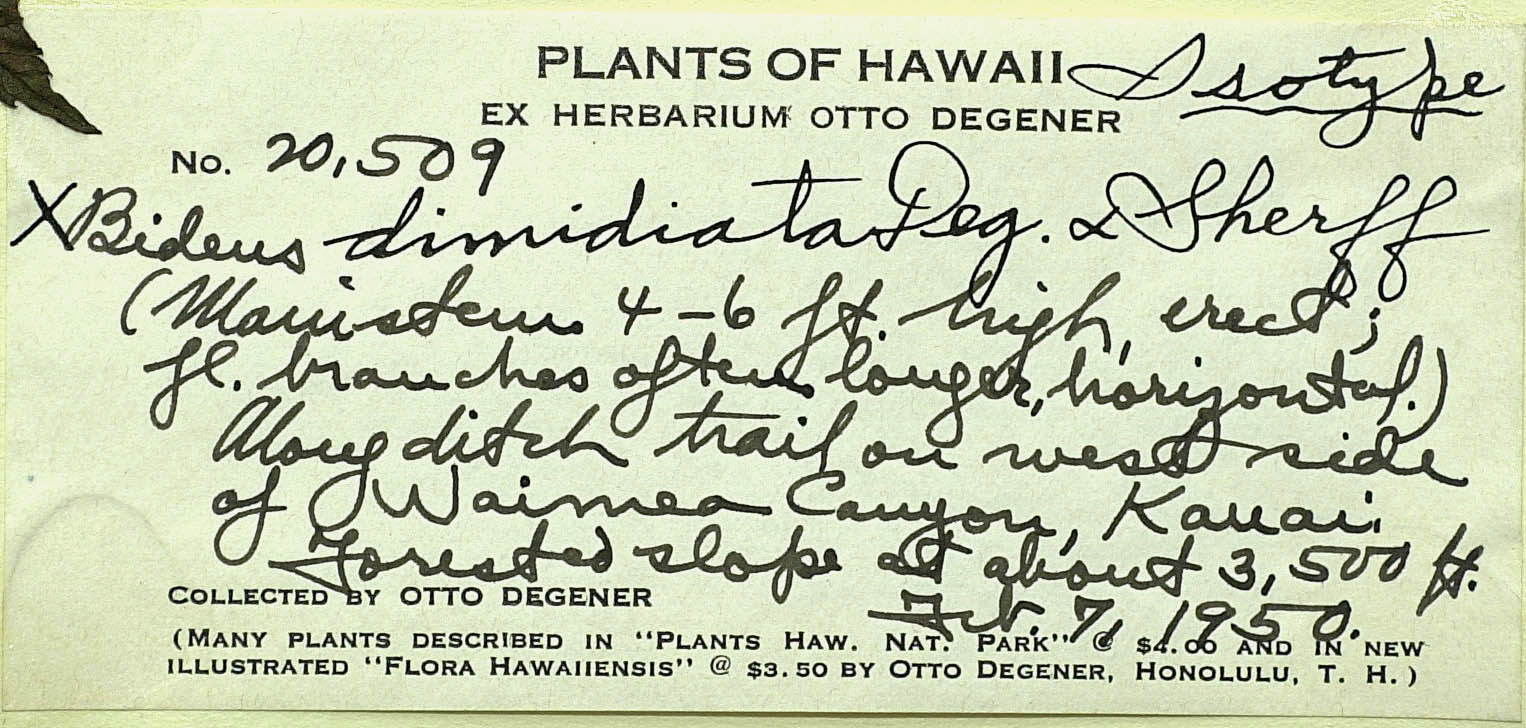 PLANTS OF HAWAII Isotype
EX HERBARIUM OTTO DEGENER
No. 20,509
X Bidens dimidiata Deg. & Sherff
(Main stem 4-6 ft. high, erect;
fl. branches often longer, horizontal.)
Along ditch trail on west side
of Waimea Canyon, Kauai.
Forested slope at about 3,500 ft.
COLLECTED BY OTTO DEGENER Feb. 7, 1950.
(MANY PLANTS DESCRIBED IN "PLANTS HAW. NAT. PARK" @ $4.00 AND IN NEW
ILLUSTRATED "FLORA HAWAIIENSIS" @ $3.50 BY OTTO DEGENER, HONOLULU, T. H.)